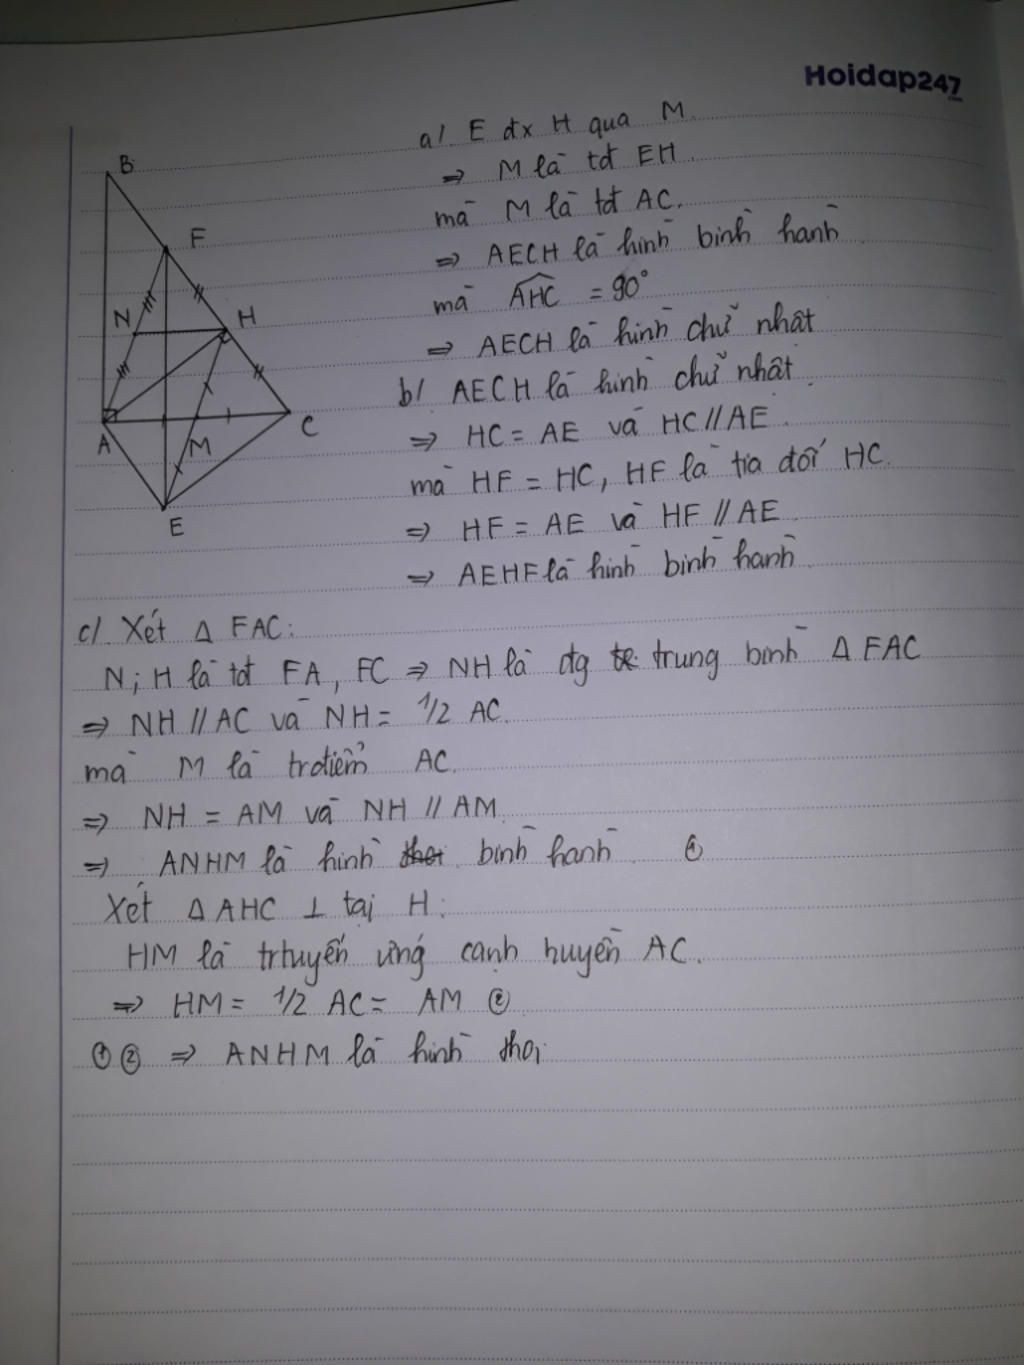 Hoidap247
a/ E đx H qua M.
⇒ M là tđ EH.
mà M là tđ AC.
⇒ AECH là hình bình hành
mà AHC = 90°
⇒ AECH là hình chữ nhật
b/ AECH là hình chữ nhật.
⇒ HC = AE và HC // AE.
mà HF = HC, HF là tia đối HC.
⇒ HF = AE và HF // AE.
⇒ AEHF là hình bình hành.
B
F
N
H
A
M
C
E
c/ Xét Δ FAC:
N; H là tđ FA, FC ⇒ NH là đg trung bình Δ FAC
⇒ NH // AC và NH = 1/2 AC.
mà M là trđiểm AC.
⇒ NH = AM và NH // AM.
⇒ ANHM là hình thoi bình hành. ①
Xét Δ AHC ⊥ tại H:
HM là trtuyến ứng cạnh huyền AC.
⇒ HM = 1/2 AC = AM ②
① ② ⇒ ANHM là hình thoi